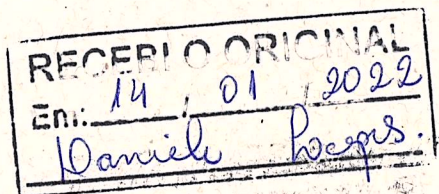 RECEBI O ORIGINAL
Em: 14 / 01 / 2022
Daniele